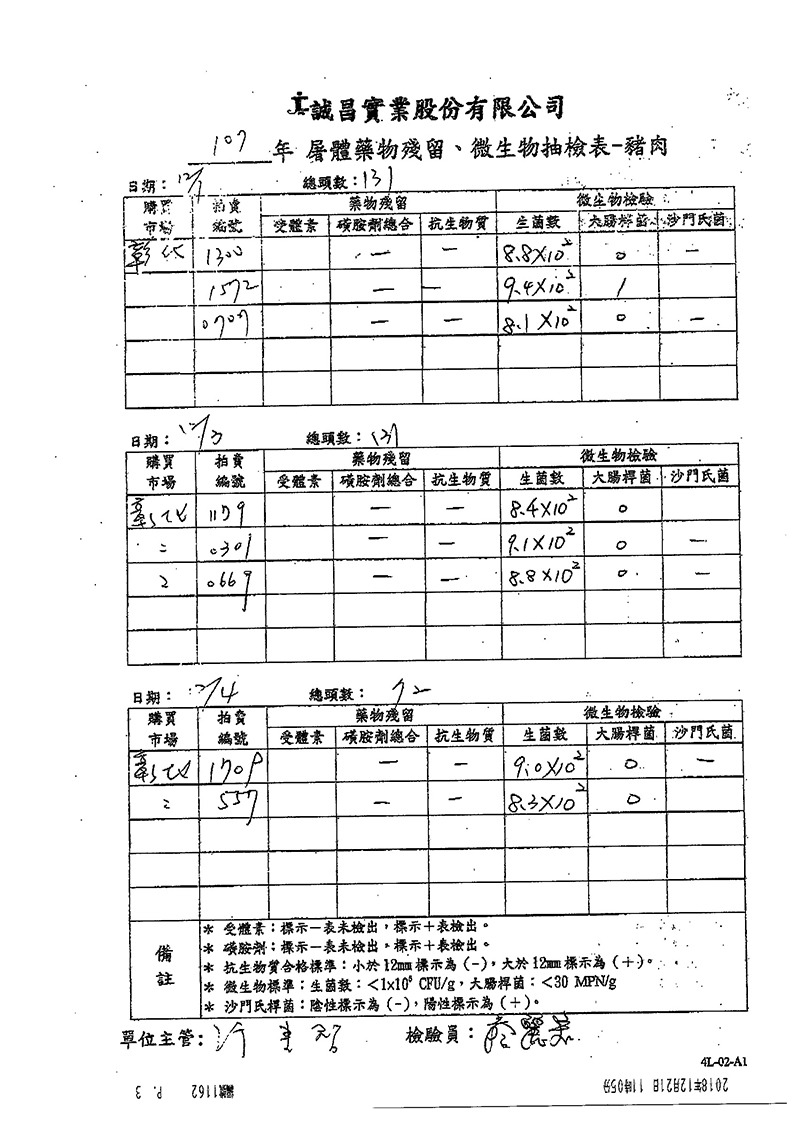 誠昌實業股份有限公司
107 年 屠體藥物殘留、微生物抽檢表-豬肉
日期: 12/1 總頭數:131
購買市場 拍賣編號 藥物殘留 微生物檢驗
受體素 磺胺劑總合 抗生物質 生菌數 大腸桿菌 沙門氏菌
彰化 1300 — — 8.8X10² 0 —
1572 — — 9.4X10² 1
0707 — — 8.1X10² 0 —
日期: 12/3 總頭數:131
購買市場 拍賣編號 藥物殘留 微生物檢驗
受體素 磺胺劑總合 抗生物質 生菌數 大腸桿菌 沙門氏菌
彰化 1179 — — 8.4X10² 0
〃 0301 — — 9.1X10² 0 —
〃 0669 — — 8.8X10² 0 —
日期: 12/4 總頭數: 72
購買市場 拍賣編號 藥物殘留 微生物檢驗
受體素 磺胺劑總合 抗生物質 生菌數 大腸桿菌 沙門氏菌
彰化 1709 — — 9.0X10² 0 —
〃 557 — — 8.3X10² 0
備註
* 受體素:標示－表未檢出,標示＋表檢出。
* 磺胺劑:標示－表未檢出,標示＋表檢出。
* 抗生物質合格標準:小於12mm標示為(－),大於12mm標示為(＋)。
* 微生物標準:生菌數:<1x10⁶ CFU/g,大腸桿菌:<30 MPN/g
* 沙門氏桿菌:陰性標示為(－),陽性標示為(＋)。
單位主管: 檢驗員:
4L-02-A1
2018年12月21日 11時05分
1162 P. 3